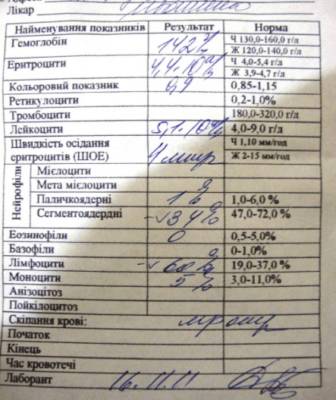 Лікар
Найменування показників Результат Норма
Гемоглобін 142 Ч 130,0-160,0 г/л
Ж 120,0-140,0 г/л
Еритроцити 4,4·10 Ч 4,0-5,4 г/л
Ж 3,9-4,7 г/л
Кольоровий показник 0,9 0,85-1,15
Ретикулоцити 0,2-1,0%
Тромбоцити 180,0-320,0 г/л
Лейкоцити 5,1·10 4,0-9,0 г/л
Швидкість осідання Ч 1,10 мм/год
еритроцитів (ШОЕ) 4 Ж 2-15 мм/год
Нейрофіли
Мієлоцити
Мета мієлоцити
Паличкоядерні 1% 1,0-6,0 %
Сегментоядерні 34% 47,0-72,0 %
Еозинофіли 0 0,5-5,0%
Базофіли 0-1,0%
Лімфоцити 60% 19,0-37,0 %
Моноцити 5% 3,0-11,0%
Анізоцітоз
Пойкілоцитоз
Скіпання крові:
Початок
Кінець
Час кровотечі
Лаборант 16.11.11